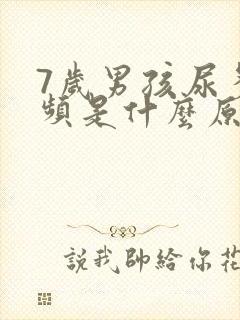 7歲男孩尿
頻是什麼原
說我帥給你花